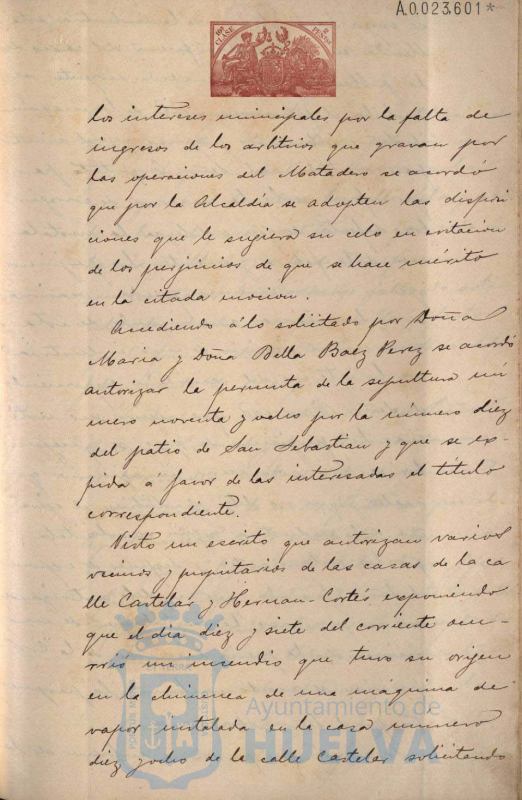 A.0.023.601*
10ª CLASE
los intereses municipales por la falta de
ingresos de los arbitrios que gravan por
las operaciones del Matadero se acordó
que por la Alcaldía se adopten las disposi
ciones que le sugiera su celo en evitacion
de los perjuicios de que se hace mérito
en la citada mocion.
Accediendo á lo solicitado por Doña
Maria y Doña Bella Baez Perez se acordó
autorizar la permuta de la sepultura nú
mero noventa y ocho por la número diez
del patio de San Sebastian y que se ex-
pida á favor de las interesadas el título
correspondiente.
Visto un escrito que autorizan varios
vecinos y propietarios de las casas de la ca
lle Castelar y Hernan-Cortés exponiendo
que el dia diez y siete del corriente ocu-
rrió un incendio que tuvo su origen
en la chimenea de una maquina de
vapor instalada en la casa numero
diez y ocho de la calle Castelar solicitando
Ayuntamiento de
HUELVA